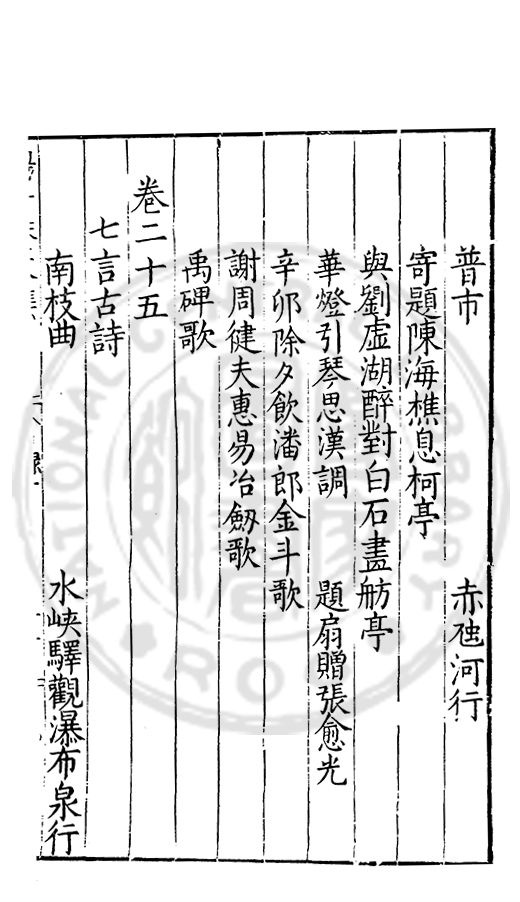 普市 赤虺河行
寄題陳海樵息柯亭
與劉虛湖醉對白石畫舫亭
華燈引琴思漢調 題扇贈張愈光
辛卯除夕飲潘郎金斗歌
謝周健夫惠易冶劒歌
禹碑歌
卷二十五
七言古詩
南枝曲 水峡驛觀瀑布泉行